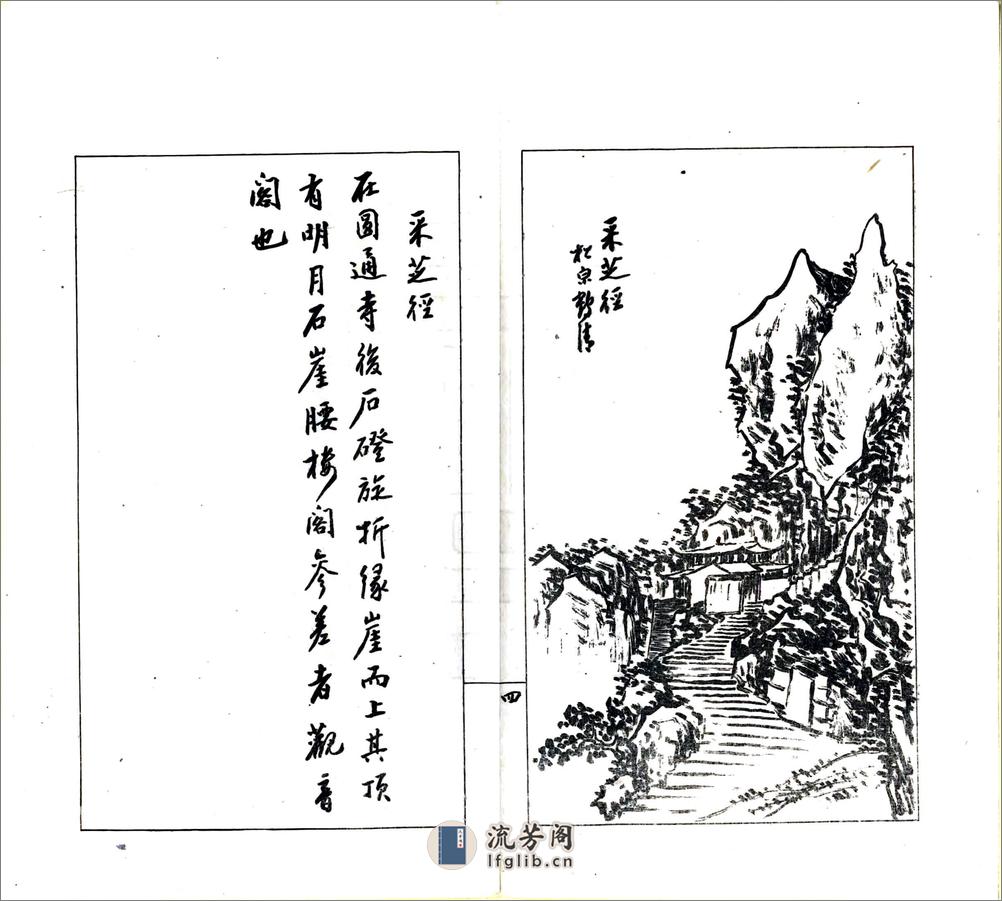 采芝徑
松泉鶴清
四
采芝徑
在圓通寺後石磴旋折緣崖而上其頂
有明月石崖腰樓閣參差者觀音
閣也
流芳阁
lfglib.cn